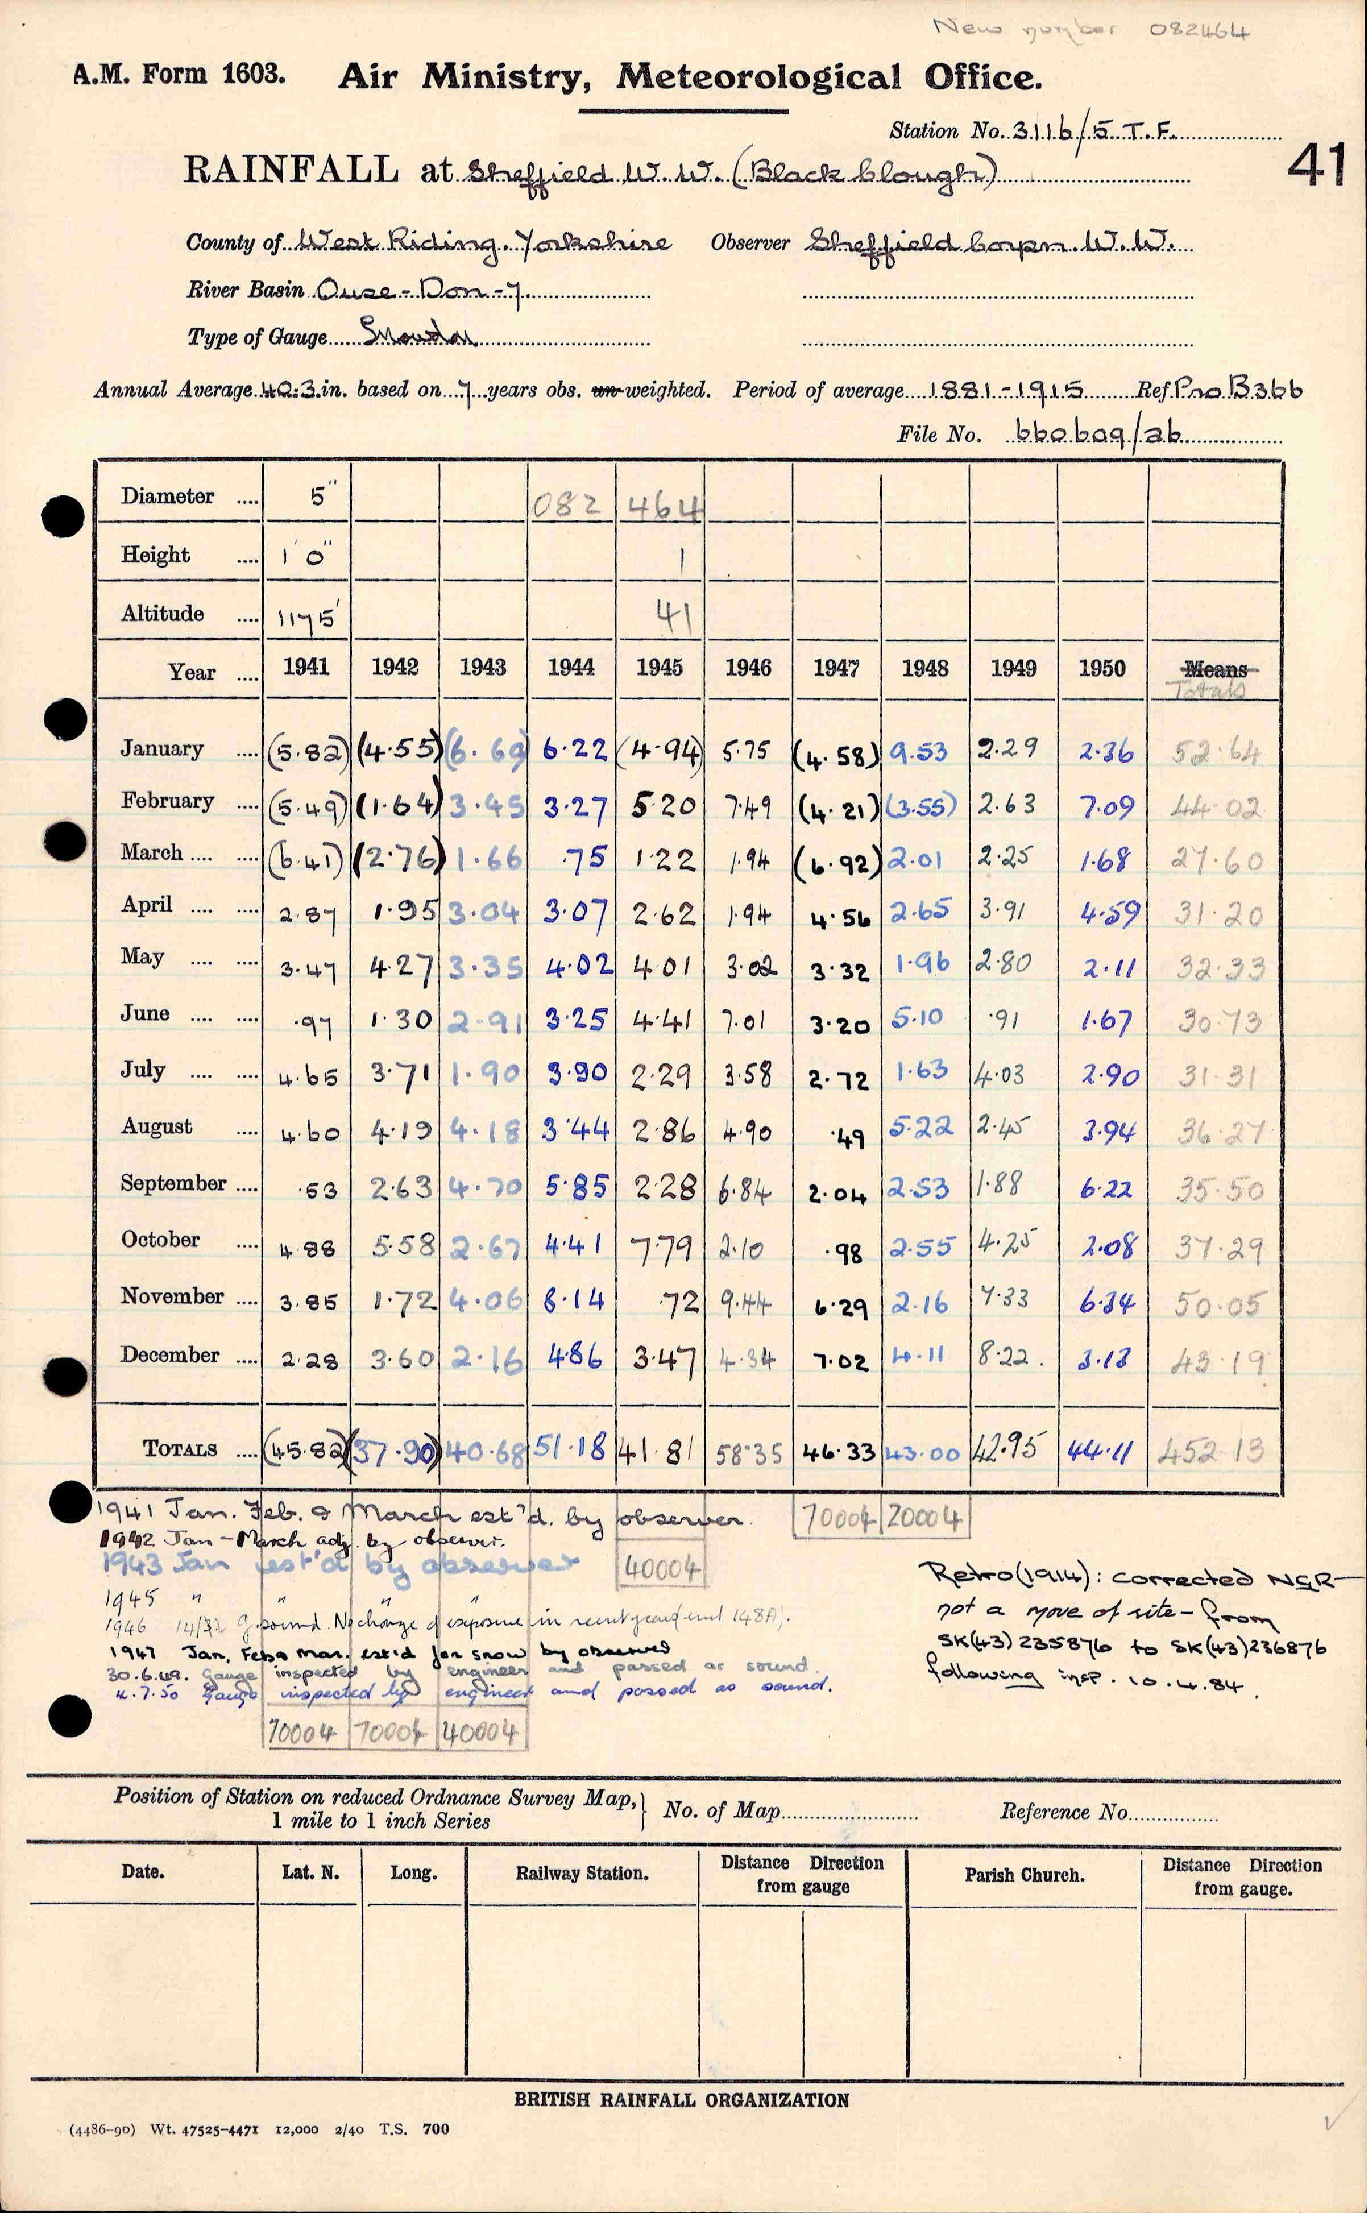 New number 082464
A.M. Form 1603. Air Ministry, Meteorological Office.
Station No. 3116/5 T.F.
41
RAINFALL at Sheffield W.W. (Black Clough)
County of West Riding. Yorkshire Observer Sheffield Corpn. W.W.
River Basin Ouse-Don-7
Type of Gauge Snowdon
Annual Average 40.3 in. based on 7 years obs. un-weighted. Period of average 1881-1915 Ref Pro B366
File No. 660609/26
Diameter .... 5" 082 464
Height .... 1' 0" 1
Altitude .... 1175' 41
Year .... 1941 1942 1943 1944 1945 1946 1947 1948 1949 1950 Means
Totals
January .... (5.82) (4.55) (6.69) 6.22 (4.94) 5.75 (4.58) 9.53 2.29 2.36 52.64
February .... (5.49) (1.64) 3.45 3.27 5.20 7.49 (4.21) (3.55) 2.63 7.09 44.02
March .... .... (6.41) (2.76) 1.66 .75 1.22 1.94 (6.92) 2.01 2.25 1.68 27.60
April .... .... 2.87 1.95 3.04 3.07 2.62 1.94 4.56 2.65 3.91 4.59 31.20
May .... .... 3.47 4.27 3.35 4.02 4.01 3.02 3.32 1.96 2.80 2.11 32.33
June .... .... .97 1.30 2.91 3.25 4.41 7.01 3.20 5.10 .91 1.67 30.73
July .... .... 4.65 3.71 1.90 3.90 2.29 3.58 2.72 1.63 4.03 2.90 31.31
August .... 4.60 4.19 4.18 3.44 2.86 4.90 .49 5.22 2.45 3.94 36.27
September .... .53 2.63 4.70 5.85 2.28 6.84 2.04 2.53 1.88 6.22 35.50
October .... 4.88 5.58 2.67 4.41 7.79 2.10 .98 2.55 4.25 2.08 37.29
November .... 3.85 1.72 4.06 8.14 .72 9.44 6.29 2.16 7.33 6.34 50.05
December .... 2.28 3.60 2.16 4.86 3.47 4.34 7.02 4.11 8.22 3.13 43.19
TOTALS .... (45.82) (37.90) 40.68 51.18 41.81 58.35 46.33 43.00 42.95 44.11 452.13
1941 Jan. Feb. & March est'd. by observer. 70004 20004
1942 Jan-March adj. by observer.
1943 Jan est'd by observer 40004
1945 " " "
1946 G. sound. No change of exposure in recent years
1947 Jan, Feb & Mar. est'd for snow by observer
30.6.49. Gauge inspected by engineer and passed as sound.
4.7.50 Gauge inspected by engineer and passed as sound.
70004 70004 40004
Retro (1914): corrected NGR-
not a move of site - from
SK(43)235876 to SK(43)236876
following insp. 10.4.84.
Position of Station on reduced Ordnance Survey Map, 1 mile to 1 inch Series } No. of Map Reference No.
Date. Lat. N. Long. Railway Station. Distance Direction from gauge Parish Church. Distance Direction from gauge.
BRITISH RAINFALL ORGANIZATION
(4486-90) Wt. 47525-4471 12,000 2/40 T.S. 700